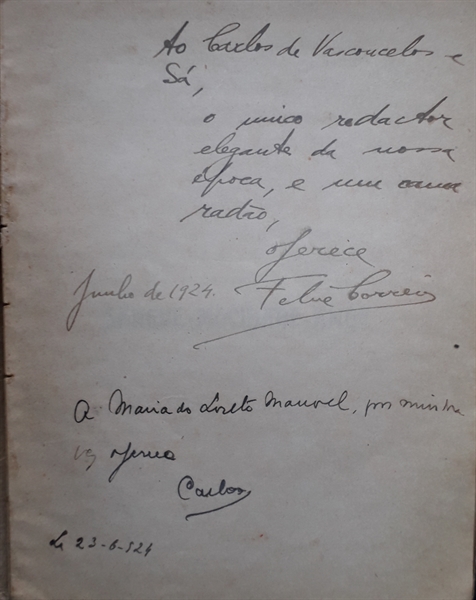 Ao Carlos de Vasconcelos e
Sá,
o unico redactor
elegante da nossa
época, e um cama
radão,
oferece
Junho de 1924. Felix Correia
A Maria do Loreto Manoel, por minha
vez oferece
Carlos
Lx 23-6-924